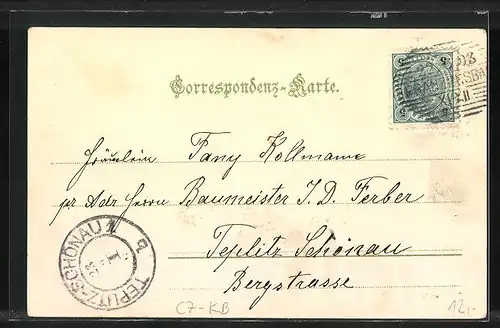 Correspondenz-Karte.
Fräulein Fany Kollmann
pr Adr Herrn Baumeister J. D. Ferber
Teplitz Schönau
Bergstrasse
TEPLITZ-SCHÖNAU 1
CZ-KB
12,-
5 5